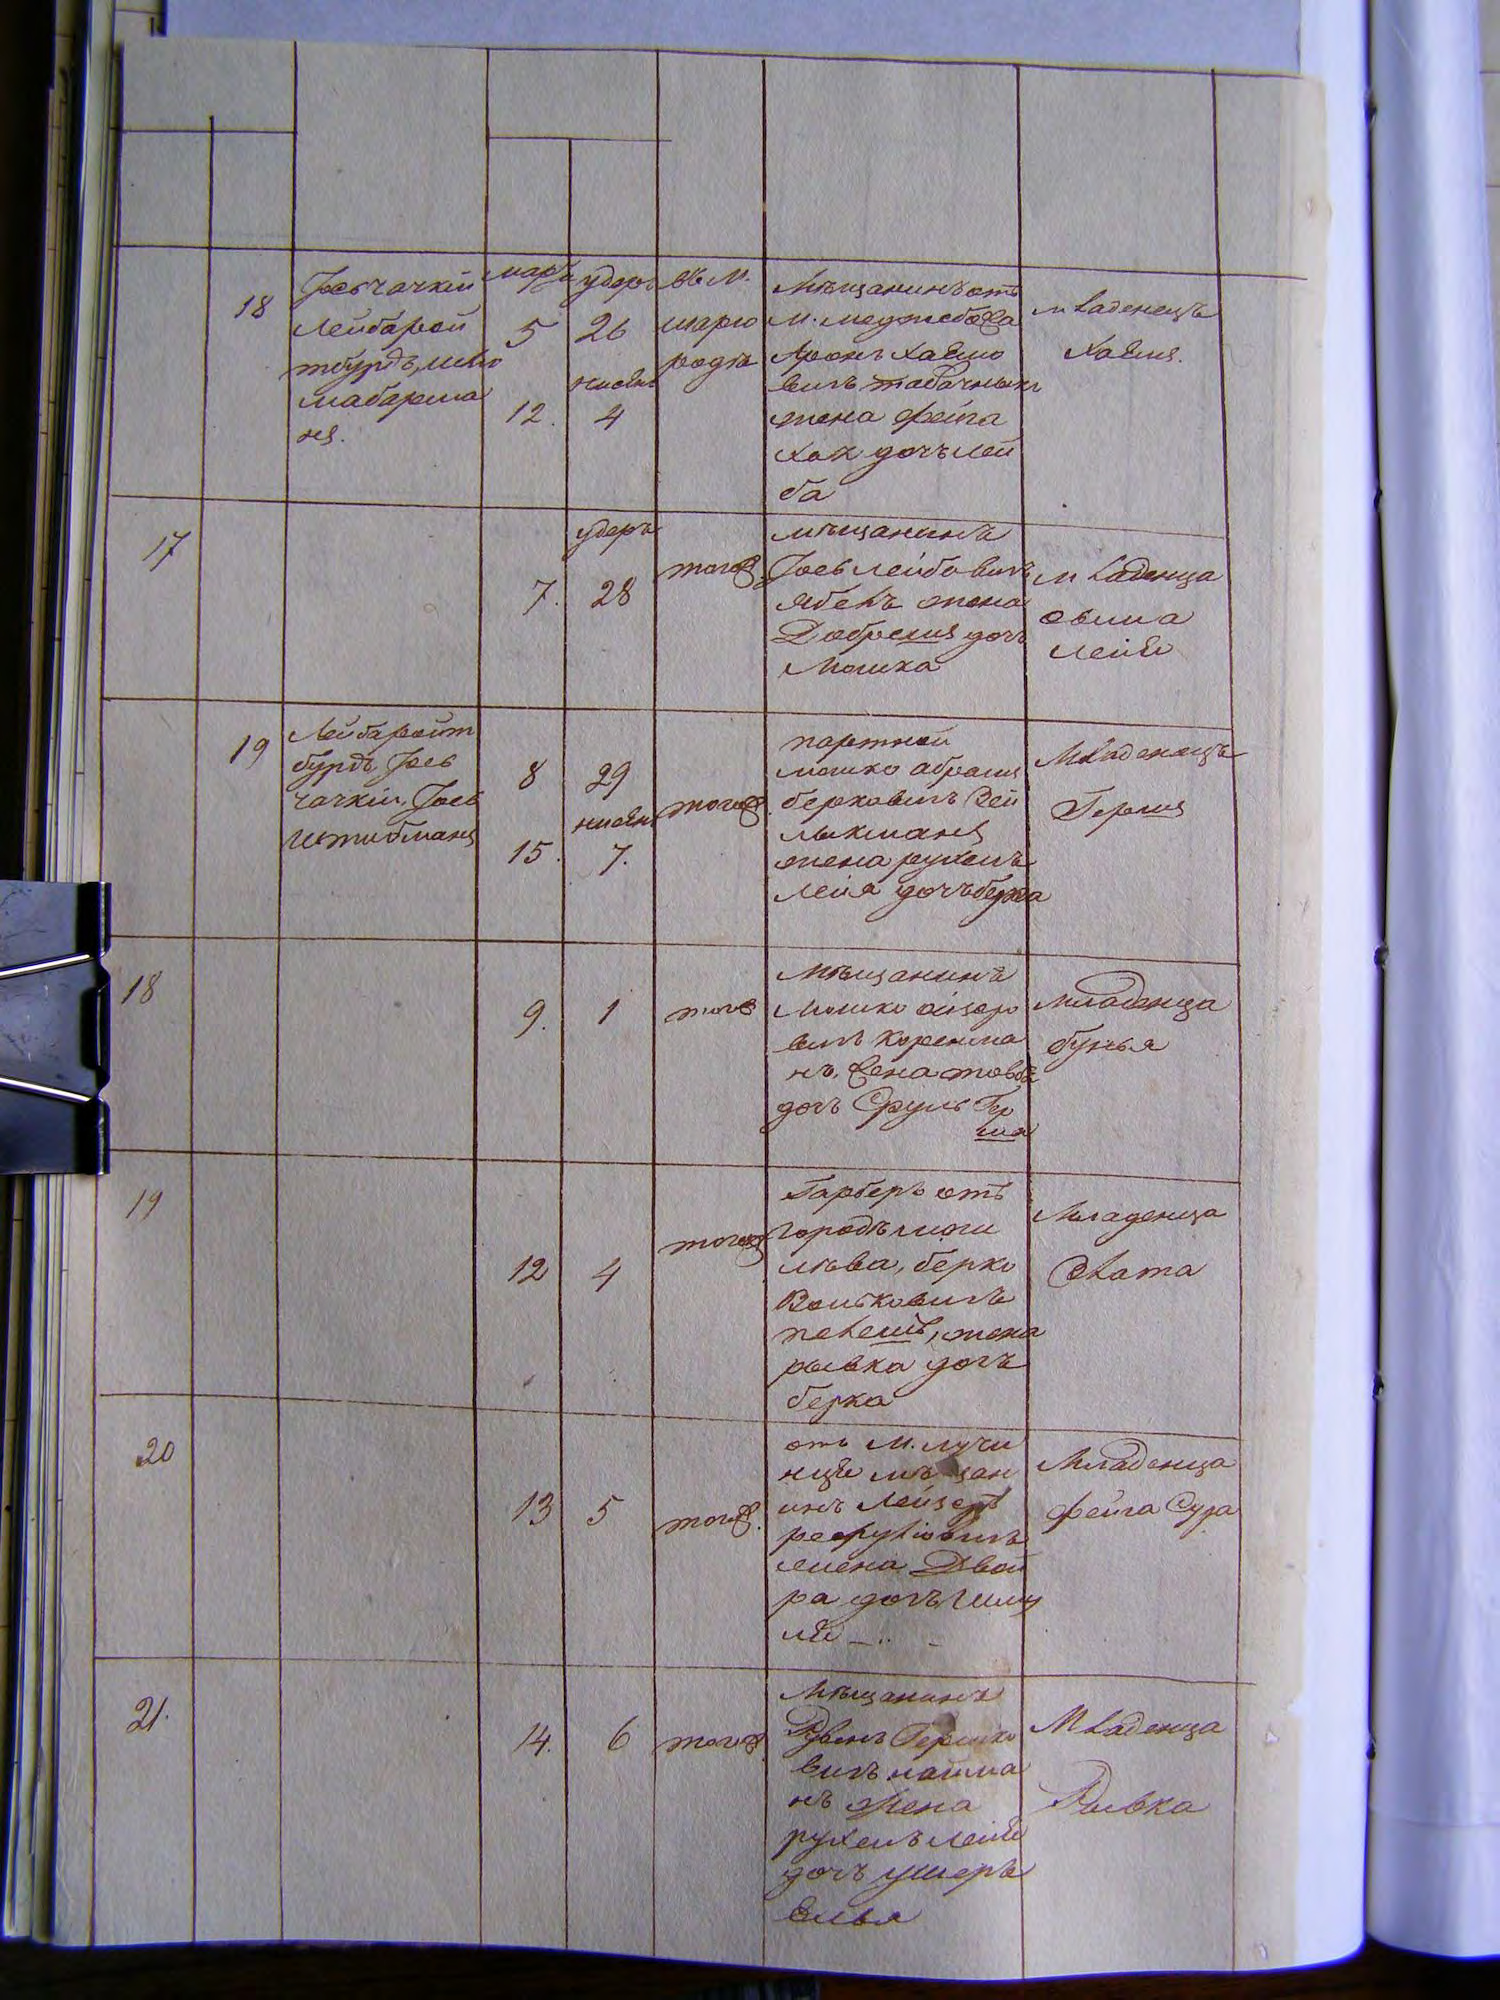 18
Іосъ чачкій
лейба рой
тбурдъ, шло
ма баршa
нъ.
марта
5
12.
удеръ
26
нисанъ
4
въ м.
шарго
родѣ
мѣщанинъ отъ
м. меджебожа
Аронъ хаимо
вичъ табачникъ
жена фейга
хая дочь лей
ба
младенецъ
хаимъ.
17
7.
удеръ
28
тогожъ
мѣщанинъ
Іось лейбовичъ
жена
Добрсия дочь
Мошка
младенца
лейя
19
Лейба ройт
бурдъ Іось
чачкій, Іось
штибманъ
8
15.
29
нисанъ
7.
тогожъ
портной
мошко абрамъ
берковичъ Вей
жена рухель
лейя дочь берка
Младенецъ
Гершъ
18
9.
1
тогожъ
Мѣщанинъ
Мошко ойзеро
вичъ Коренма
нъ. жена товба
дочь Сруль Гер
ша
младенца
бунья
19
12
4
тогожъ
Гарберъ отъ
городъ моги
лѣва, берко
Волковичъ
жена
рывка дочь
берка
Младенца
Злата
20
13
5
тогожъ.
отъ м. лучи
нцы мѣщан
инъ Лейзеръ
жена Двой
ра дочь Шму
ль
Младенца
фейга Сура
21.
14.
6
тогожъ.
Мѣщанинъ
Рувенъ Гершко
вичъ найма
нъ жена
рухель лейя
дочь ушеръ
Элья
Младенца
Рывка